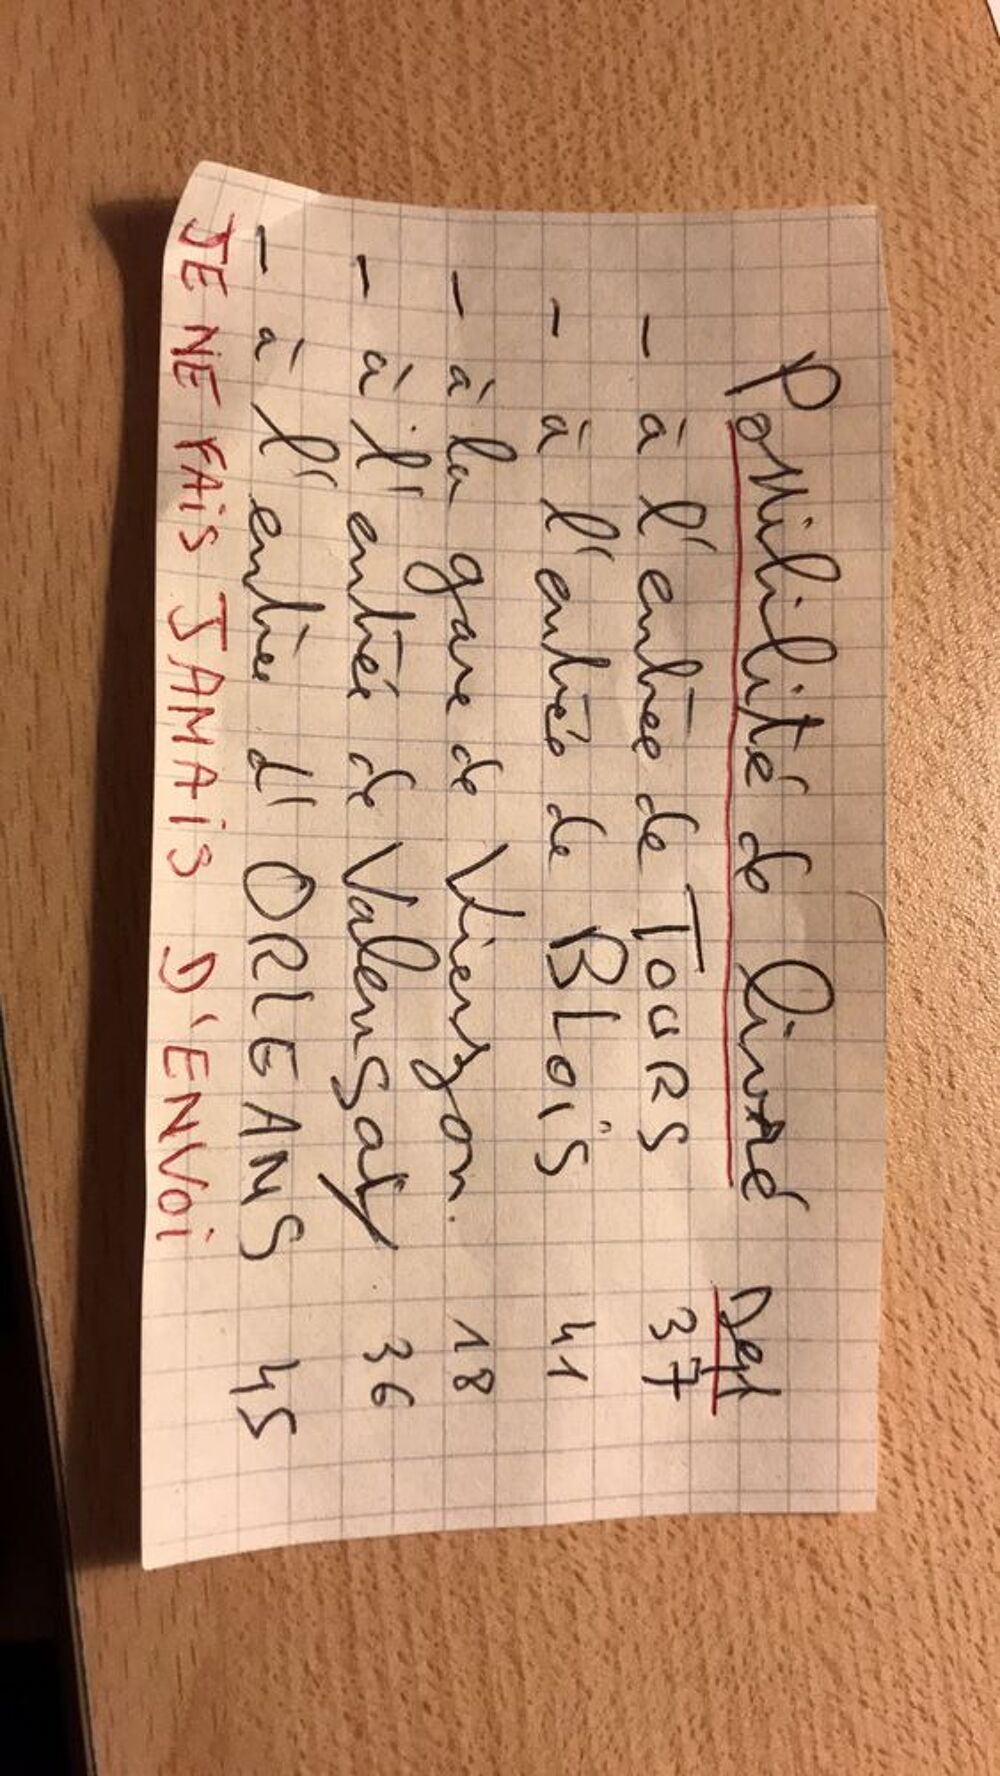 Possibilité de livré Dept
- à l'entrée de TOURS 37
- à l'entrée de BLOiS 41
- à la gare de Vierzon. 18
- à l'entrée de Valensay 36
- à l'entrée d'ORLEANS 45
JE NE FAiS JAMAiS D'ENVOi